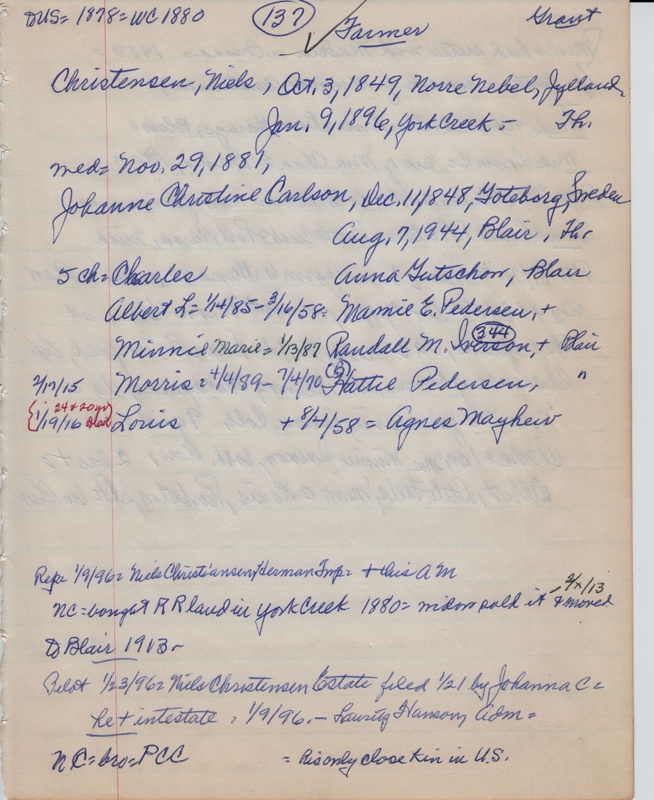 DUS= 1878= WC 1880 (137) ✓ Farmer Grant
Christensen, Niels, Oct. 3, 1849, Norre Nebel, Jylland-
Jan. 9, 1896, York Creek - Th.
med= Nov. 29, 1881,
Johanne Christine Carlson, Dec. 11, 1848, Goteborg, Sweden
Aug. 7, 1944, Blair, Th
5 ch= Charles Anna Gutschow, Blair
Albert L= 1/14/85 - 3/16/58= Mamie E. Pedersen, +
Minnie Marie = 1/13/87 Randall M. Iverson, (344) + Blair
2/17/15 Morris = 4/4/89 - 7/4/70 (B) Hattie Pedersen, "
{1/19/16 24 & 20 yr Louis + 8/4/58 = Agnes Mayhew
Rep= 1/9/96= Niels Christiansen, Herman Twp= + this AM
NC= bought RR land in York Creek 1880= widow sold it & moved 2/x/13
to Blair 1913-
Pilot 1/23/96= Niels Christensen Estate filed 1/21 by Johanna C=
he + intestate = 1/9/96. - Lauritz Hanson, Adm=
NC= bro= PCC = his only close kin in U.S.